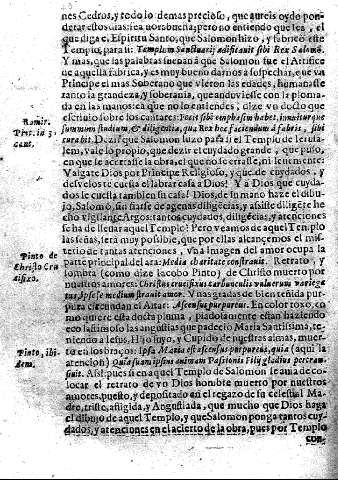 nes Cedros, y todo lo demas precioso, que aureis oydo pon-
derar estos dias: sea norabuena, pero no entiendo que sea, el
que diga el Espiritu Santo, que Salomon hizo, y fabricò este
Templo, para si: Templum Sanctuarij ædificauit sibi Rex Salomõ.
Y mas, que las palabras suenan à que Salomon fue el Artifice
de aquella fabrica, y es muy bueno darnos à sospechar, que vn
Principe el mas Soberano que vieron las edades, humanasse
tanto la grandeza, y soberania, que anduviesse con la ploma-
da en las manos: ea que no lo entiendes, dize vn docto que
escriuio sobre los cantares:
Ramir.
Pint. in 3.
cant.
summum studium, & diligentia, qua Rex hec faciendum à fabris, sibi
curabit. Dezir que Salomon hizo para si el Templo de Ierusa-
lem, vale lo propio, que dezir el cuydado grande, que puso,
en que se acertasse la obra, el que no se errasse, ni leuemente:
Valgate Dios por Principe Religioso, y que de cuydados, y
desvelos te cuesta el labrar casa à Dios! Y à Dios que cuyda-
dos le cuesta tambien su casa? Dios, de su mano haze el dibu-
jo, Salomõ, sin fiarse de agenas diligencias, y assiste diligẽte he
cho vigilante Argos: tantos cuydados, diligẽcias, y atenciones
se ha de llevar aquel Templo? Pero veamos de aquel Templo
las señas, serà muy posible, que por ellas alcançemos el mis-
terio de tantas atenciones. Vna imagen del amor ocupa la
parte principal del ara: Media charitate constrauit. Retrato, y
sombra (como dize Iacobo Pinto) de Christo muerto por
nuestros amores:
Pinto de
Christo Cru
cifixo.
Christus crucifixus carbunculis vulnerum variega
tus, ipse se medium strauit amor. Vnas gradas de bien teñida pur-
pura circundan el Altar: Ascensus purpureus. En color roxo, co
mo quiere esta docta pluma, piadosamente estan haziendo
eco lastimoso las angustias que padeciò Maria Santissima, te-
niendo à Iesus, Hijo suyo, y Cupido de nuestras almas, muer-
to en los braços: ipsa Maria est ascensus purpureus, quia (aqui la
atencion)
Pinto, ibi-
dem.
Quia suam ipsius animam Passionis Filij gladius pertran-
siuit. Assi: pues si en aquel Templo de Salomon se auia de co-
locar el retrato de vn Dios hombre muerto por nuestros
amores, puesto, y depositado en el regazo de su celestial Ma-
dre, triste, afligida, y Angustiada, que mucho que Dios haga
el dibujo de aquel Templo, y que Salomon ponga tantos cuy-
dados, y atenciones en el acierto de la obra, pues por Templo
con-